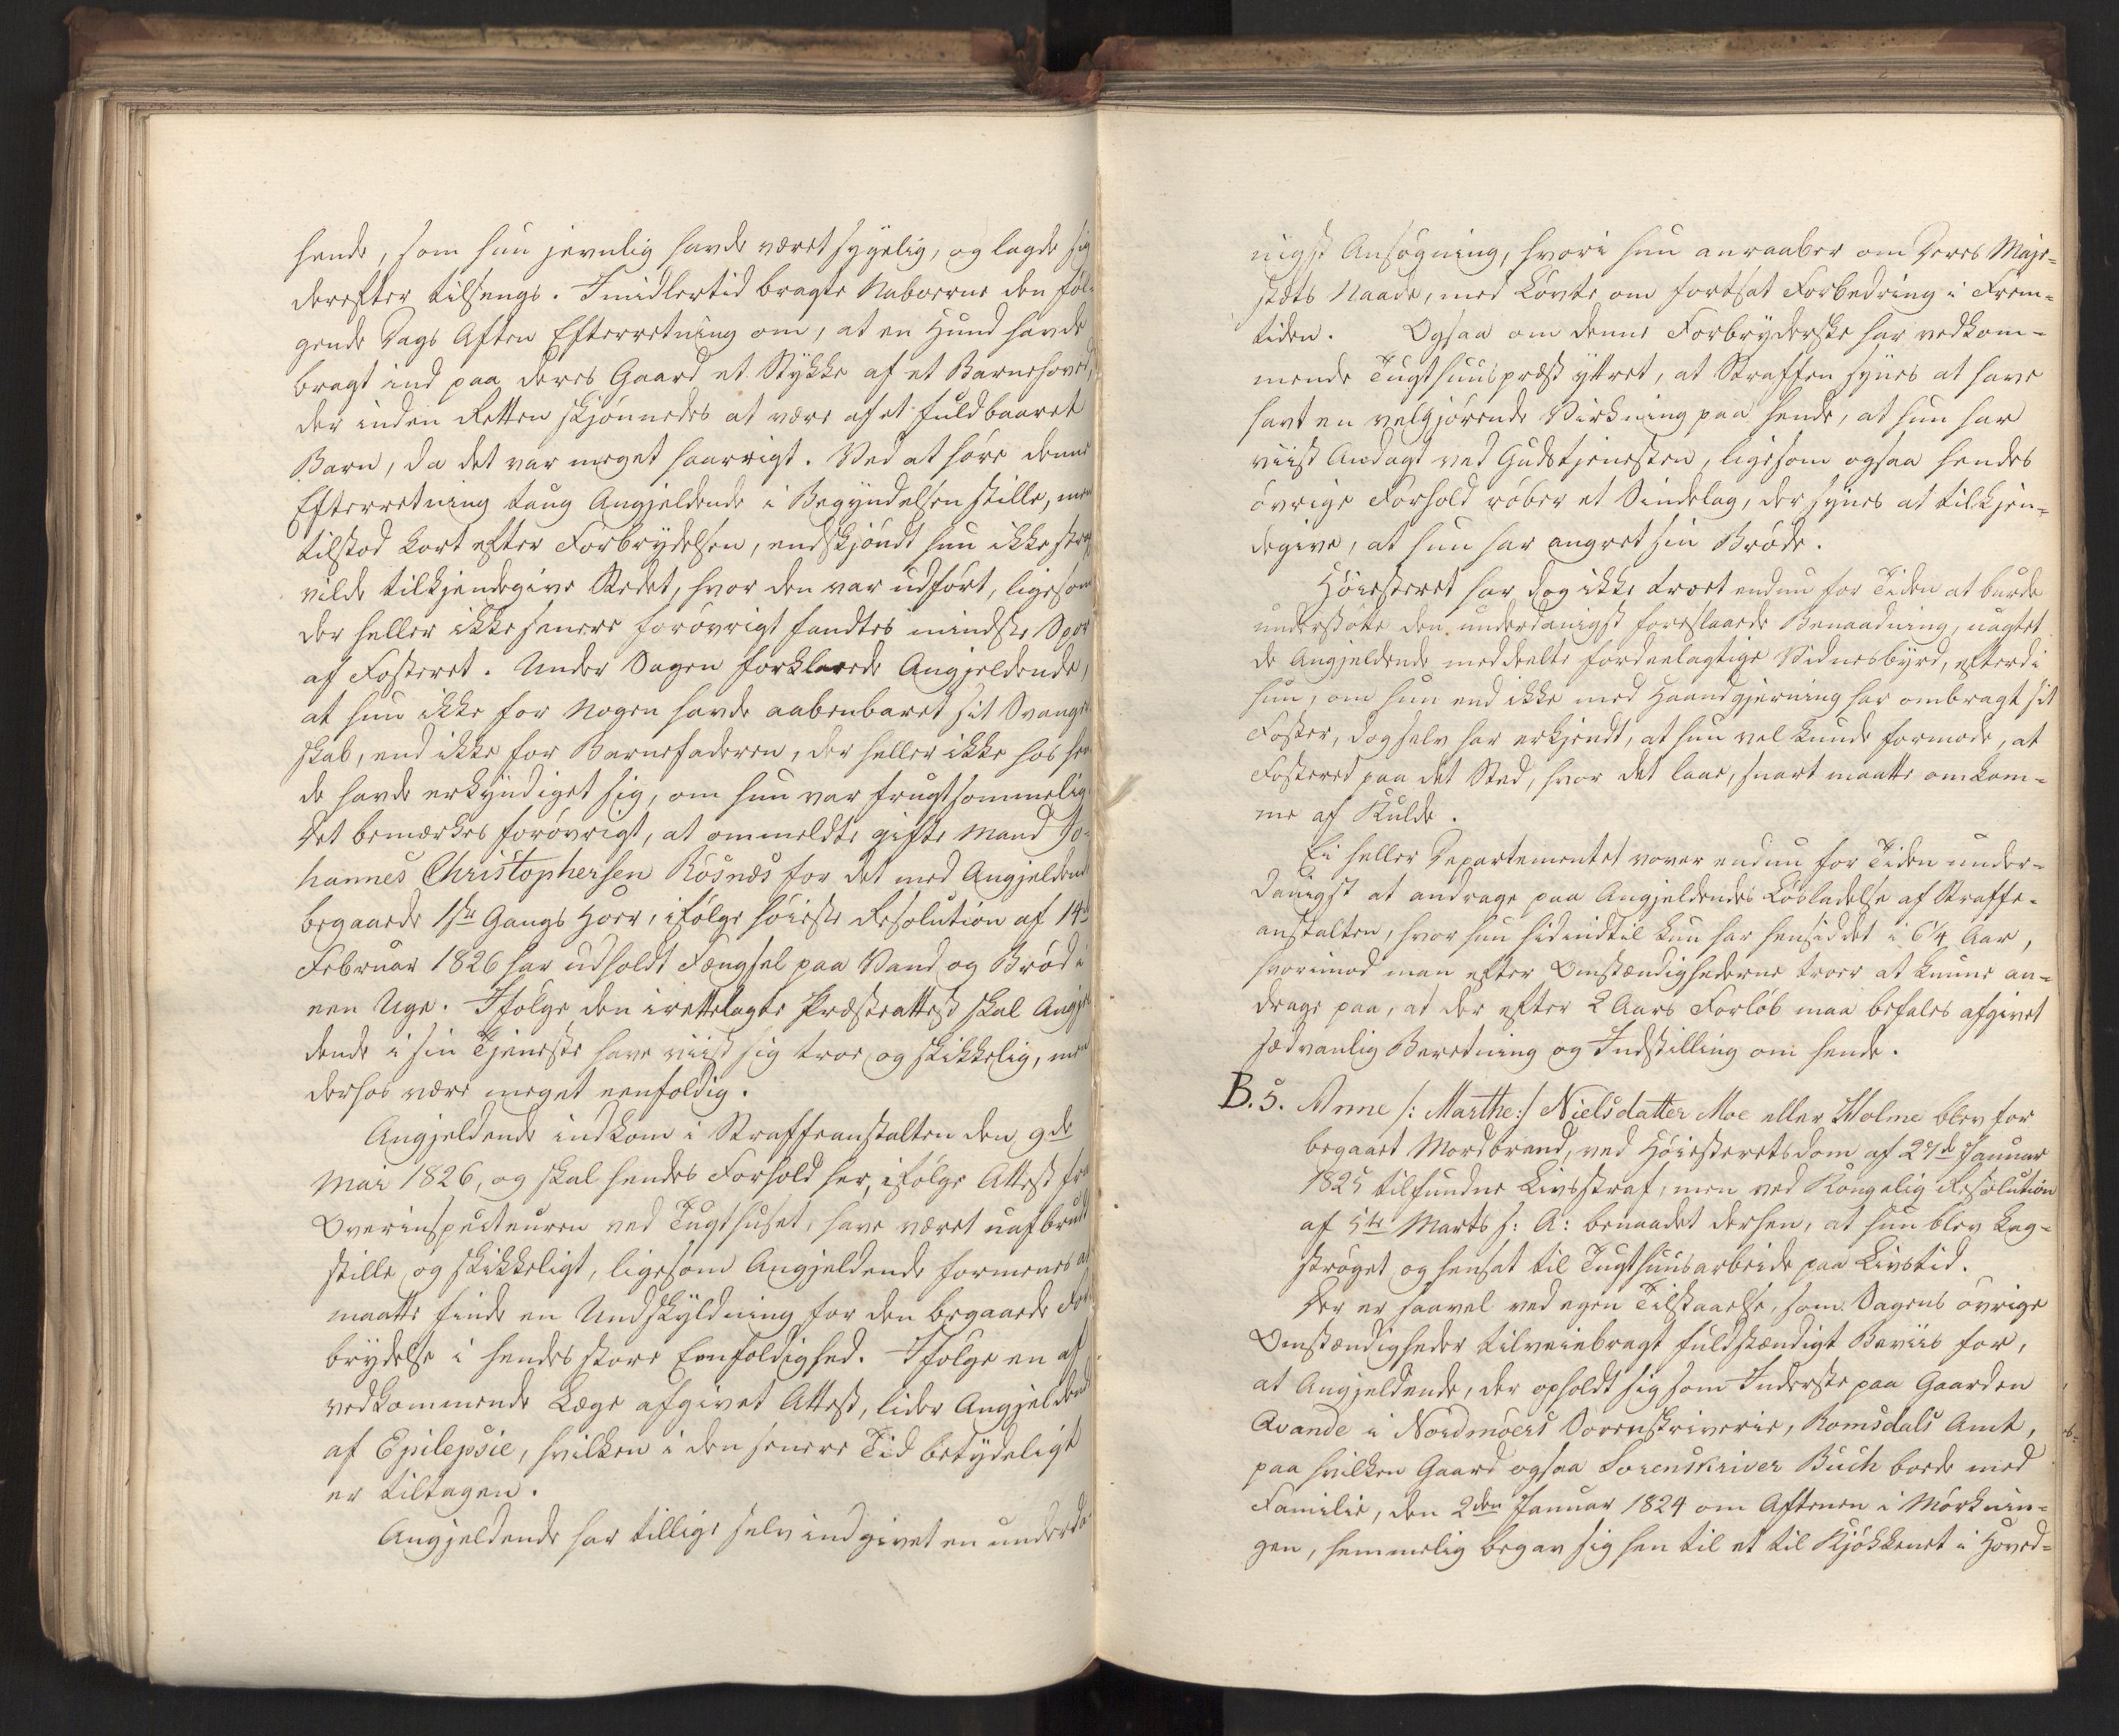 hende, som hun jevnlig havde været sygelig, og lagde sig
derefter tilsengs. Imidlertid bragte Naboerne den föl-
gende Dags Aften Efterretning om, at en Hund havde
bragt ind paa deres Gaard et Stykke af et Barnehoved,
der inden Retten skjönnedes at være af et fuldbaaret
Barn, da det var meget haarrigt. Ved at höre denne
Efterretning taug Angjeldende i Begyndelsen stille, men
tilstod kort efter Forbrydelsen, endskjöndt hun ikke strax
vilde tilkjendegive Stedet, hvor den var udfört, ligesom
der heller ikke senere forövrigt fandtes mindste Spor
af Fosteret. Under Sagen forklarede Angjeldende,
at hun ikke for Nogen havde aabenbaret sit Svanger
skab, end ikke for Barnefaderen, der heller ikke hos hen
de havde erkyndiget sig, om hun var frugtsommelig.
Det bemærkes forövrigt, at ommeldte gifte Mand Jo-
hannes Christophersen Rösnæs for det med Angjeldende
begaaede 1ste Gangs Hoer, ifölge höieste Resolution af 14de
Februar 1826 har udholdt Fængsel paa Vand og Bröd i
een Uge. Ifölge den irettelagte Præsteattest skal Angjel
dende i sin Tjeneste have viist sig troe og skikkelig, men
derhos være meget eenfoldig.
Angjeldende indkom i Straffeanstalten den 9de
Mai 1826, og skal hendes Forhold her, ifölge Attest fra
Overinspecteuren ved Tugthuset, have været uafbrudt
stille og skikkeligt, ligesom Angjeldende formenes at
maatte finde en Undskyldning for den begaaede For
brydelse i hendes store Eenfoldighed. Ifölge en af
vedkommende Læge afgivet Attest, lider Angjeldende
af Epilepsie, hvilken i den senere Tid betydeligt
er tiltagen.
Angjeldende har tillige selv indgivet en underda-
nigst Ansögning, hvori hun anraaber om Deres Maje-
stæts Naade, med Lövte om fortsat Forbedring i Frem-
tiden. Ogsaa om denne Forbryderske har vedkom-
mende Tugthuuspræst yttret, at Straffen synes at have
havt en velgjörende Virkning paa hende, at hun har
viist Andagt ved Gudstjenesten, ligesom ogsaa hendes
övrige Forhold röber et Sindelag, der synes at tilkjen-
degive, at hun har angret sin Bröde.
Höiesteret har dog ikke troet endnu for Tiden at burde
understötte den underdanigst foreslaaede Benaadning, uagtet
de Angjeldende meddeelte fordeelagtige Vidnesbyrd, efterdi
hun, om hun end ikke med Haandgjerning har ombragt sit
Foster, dog selv har erkjendt, at hun vel kunde formode, at
Fosteret paa det Sted, hvor det laae, snart maatte omkom-
me af Kulde.
Ei heller Departementet vover endnu for Tiden under-
danigst at andrage paa Angjeldendes Lösladelse af Straffe-
anstalten, hvor hun hidindtil kun har hensiddet i 6 1/4 Aar,
hvorimod man efter Omstændighederne troer at kunne an-
drage paa, at der efter 2 Aars Forlöb maa befales afgivet
sædvanlig Beretning og Indstilling om hende.
B. 5. Anne /: Marthe:/ Nielsdatter Moe eller Holme blev for
begaaet Mordbrand, ved Höiesteretsdom af 27de Januar
1825 tilfunden Livsstraf, men ved Kongelig Resolution
af 5te Marts s: A: benaadet derhen, at hun blev kag-
ströget og hensat til Tugthuusarbeide paa Livstid.
Der er saavel ved egen Tilstaaelse, som Sagens övrige
Omstændigheder tilveiebragt fuldstændigt Beviis for,
at Angjeldende, der opholdt sig som Inderste paa Gaarden
Qvande i Nordmöers Sorenskriverie, Romsdals Amt,
paa hvilken Gaard ogsaa Sorenskriver Buch boede med
Familie, den 2den Januar 1824 om Aftenen i Mörknin-
gen, hemmelig begav sig hen til et til Kjökkenet i Hoved-